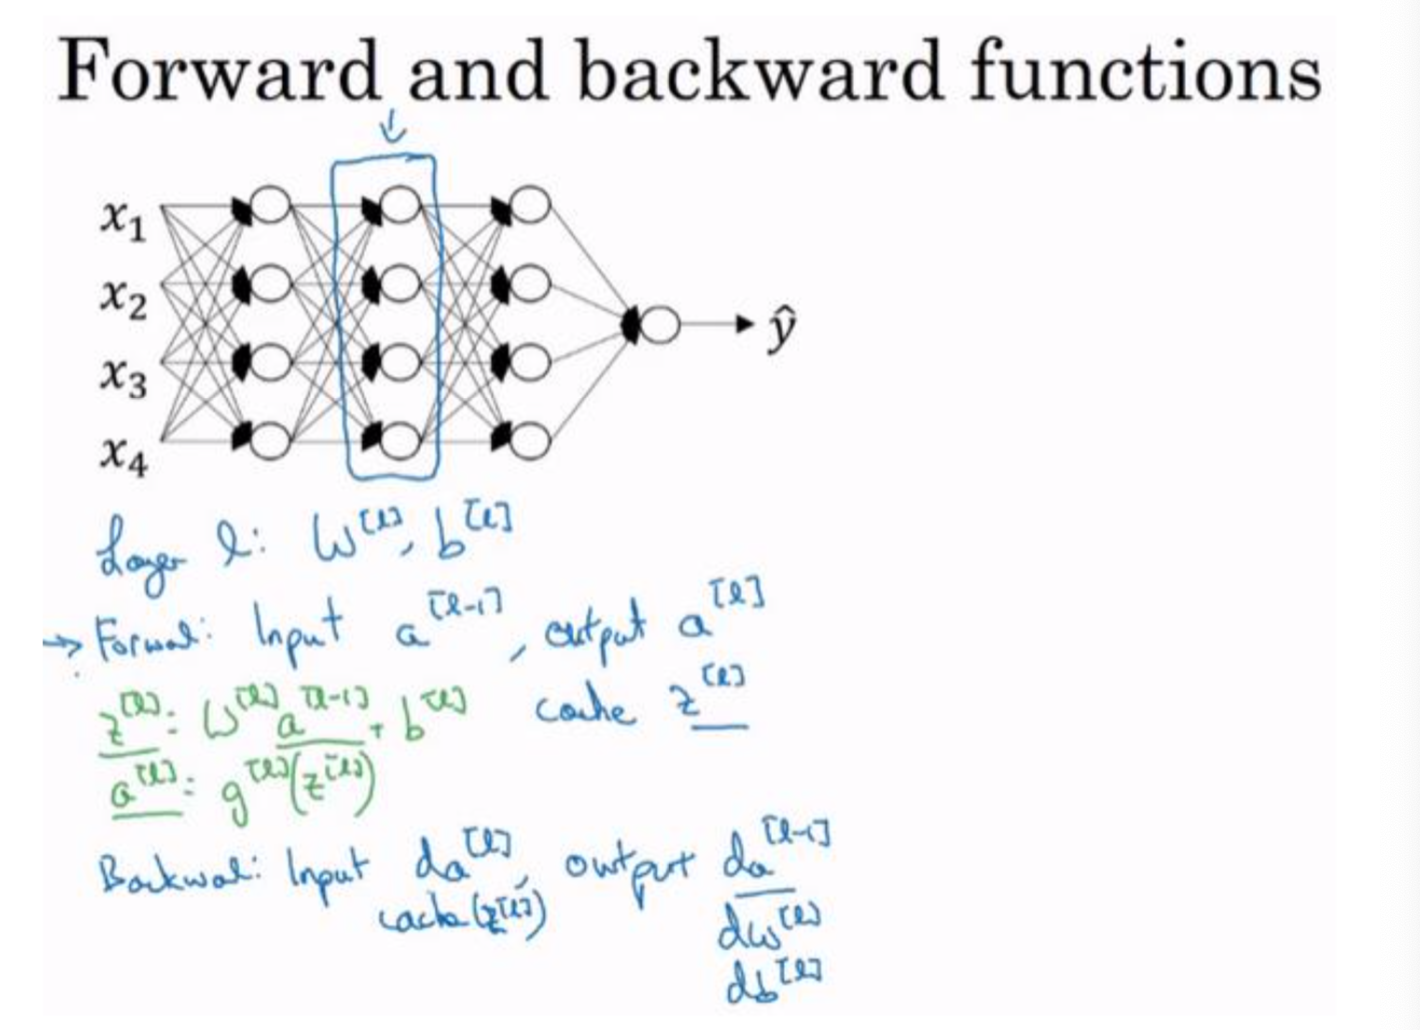 Forward and backward functions
x₁
x₂
x₃
x₄
ŷ
Layer l: W^[l], b^[l]
→ Forward: Input a^[l-1], output a^[l]
cache z^[l]
z^[l]: W^[l] a^[l-1] + b^[l]
a^[l]: g^[l](z^[l])
Backward: Input da^[l], output da^[l-1]
cache (z^[l])
dW^[l]
db^[l]